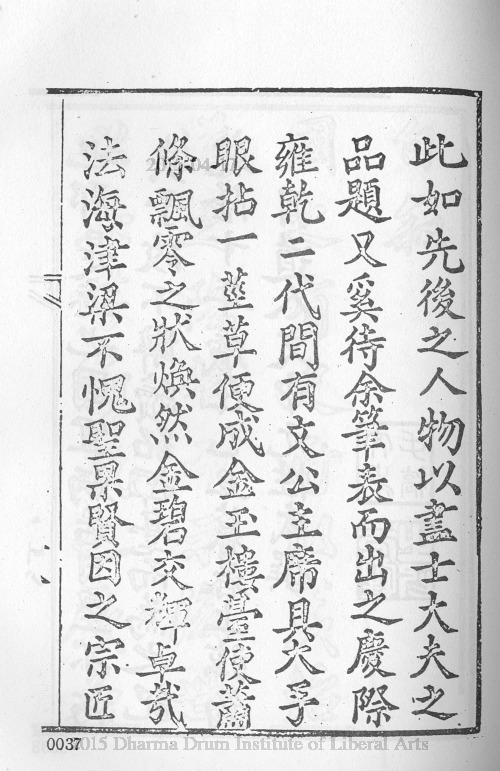 此如先後之人物以盡士大夫之
品題又奚待余筆表而出之慶際
雍乾二代間有文公主席具大手
眼拈一莖草便成金玉樓臺使蕭
條飄零之狀煥然金碧交輝卓哉
法海津梁不愧聖果賢因之宗匠
0037
2015 Dharma Drum Institute of Liberal Arts